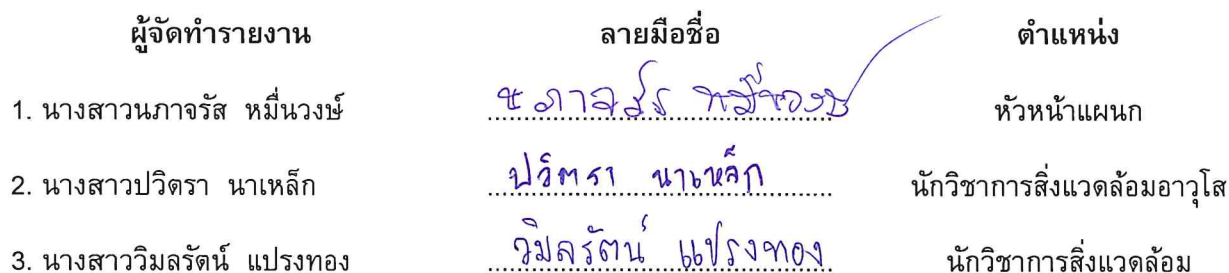 ผู้จัดทำรายงาน ลายมือชื่อ ตำแหน่ง
1. นางสาวนภาจรัส หมื่นวงษ์ นภาจรัส หมื่นวงษ์ หัวหน้าแผนก
2. นางสาวปวิตรา นาเหล็ก ปวิตรา นาเหล็ก นักวิชาการสิ่งแวดล้อมอาวุโส
3. นางสาววิมลรัตน์ แปรงทอง วิมลรัตน์ แปรงทอง นักวิชาการสิ่งแวดล้อม